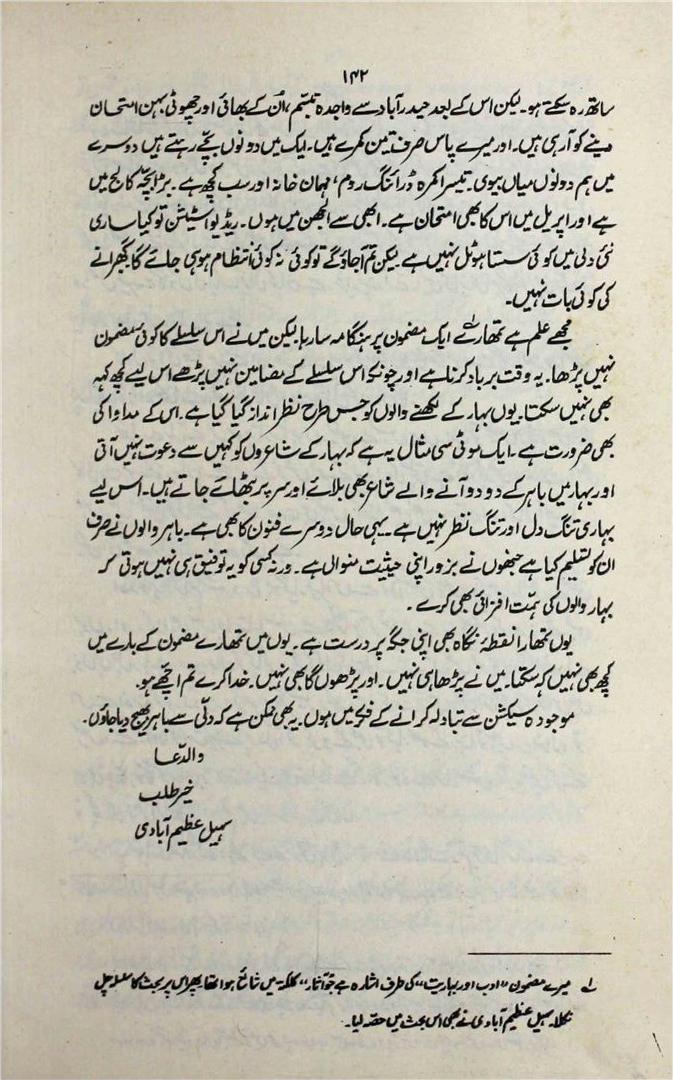 ۱۴۲
ساتھ رہ سکتے ہو۔ لیکن اس کے بعد حیدرآباد سے واجدہ تبسّم، اُن کے بھائی اور چھوٹی بہن امتحان
دینے کو آ رہی ہیں۔ اور میرے پاس صرف تین کمرے ہیں۔ ایک میں دونوں بچّے رہتے ہیں دوسرے
میں ہم دونوں میاں بیوی۔ تیسرا کمرہ ڈرائنگ روم، مہمان خانہ اور سب کچھ ہے۔ بڑا بچّہ کالج میں
ہے اور اپریل میں اس کا بھی امتحان ہے۔ ابھی سے الجھن میں ہوں۔ ریڈیو اسٹیشن تو کیا ساری
نئی دلی میں کوئی سستا ہوٹل نہیں ہے لیکن تم آجاؤ گے تو کوئی نہ کوئی انتظام ہو ہی جائے گا گھبرانے
کی کوئی بات نہیں۔
مجھے علم ہے تمھارے۱؎ ایک مضمون پر ہنگامہ سا رہا لیکن میں نے اس سلسلے کا کوئی مضمون
نہیں پڑھا۔ یہ وقت برباد کرنا ہے اور چونکہ اس سلسلے کے مضامین نہیں پڑھے اس لیے کچھ کہہ
بھی نہیں سکتا۔ یوں بہار کے لکھنے والوں کو جس طرح نظر انداز کیا گیا ہے۔ اس کے مداوا کی
بھی ضرورت ہے۔ ایک موٹی سی مثال یہ ہے کہ بہار کے شاعروں کو کہیں سے دعوت نہیں آتی
اور بہار میں باہر کے دو دو آنے والے شاعر بھی بلائے اور سر پر بٹھائے جاتے ہیں۔ اس لیے
بہاری تنگ دل اور تنگ نظر نہیں ہے۔ یہی حال دوسرے فنون کا بھی ہے۔ باہر والوں نے صرف
ان کو تسلیم کیا ہے جنھوں نے بزور اپنی حیثیت منوالی ہے۔ ورنہ کسی کو یہ توفیق ہی نہیں ہوتی کہ
بہار والوں کی ہمّت افزائی بھی کرے۔
یوں تمھارا نقطۂ نگاہ بھی اپنی جگہ پر درست ہے۔ یوں میں تمھارے مضمون کے بارے میں
کچھ بھی نہیں کہہ سکتا۔ میں نے پڑھا ہی نہیں۔ اور پڑھوں گا بھی نہیں۔ خدا کرے تم اچھے ہو۔
موجودہ سیکشن سے تبادلہ کرانے کے فکر میں ہوں۔ یہ بھی ممکن ہے کہ دلّی سے باہر بھیج دیا جاؤں۔
والدّعا
خیر طلب
سہیل عظیم آبادی
۱؎ میرے مضمون "ادب اور بہاریت" کی طرف اشارہ ہے جو "آثار" کلکتہ میں شائع ہوا تھا پھر اس پر بحث کا سلسلہ چل
نکلا۔ سہیل عظیم آبادی نے بھی اس بحث میں حصّہ لیا۔